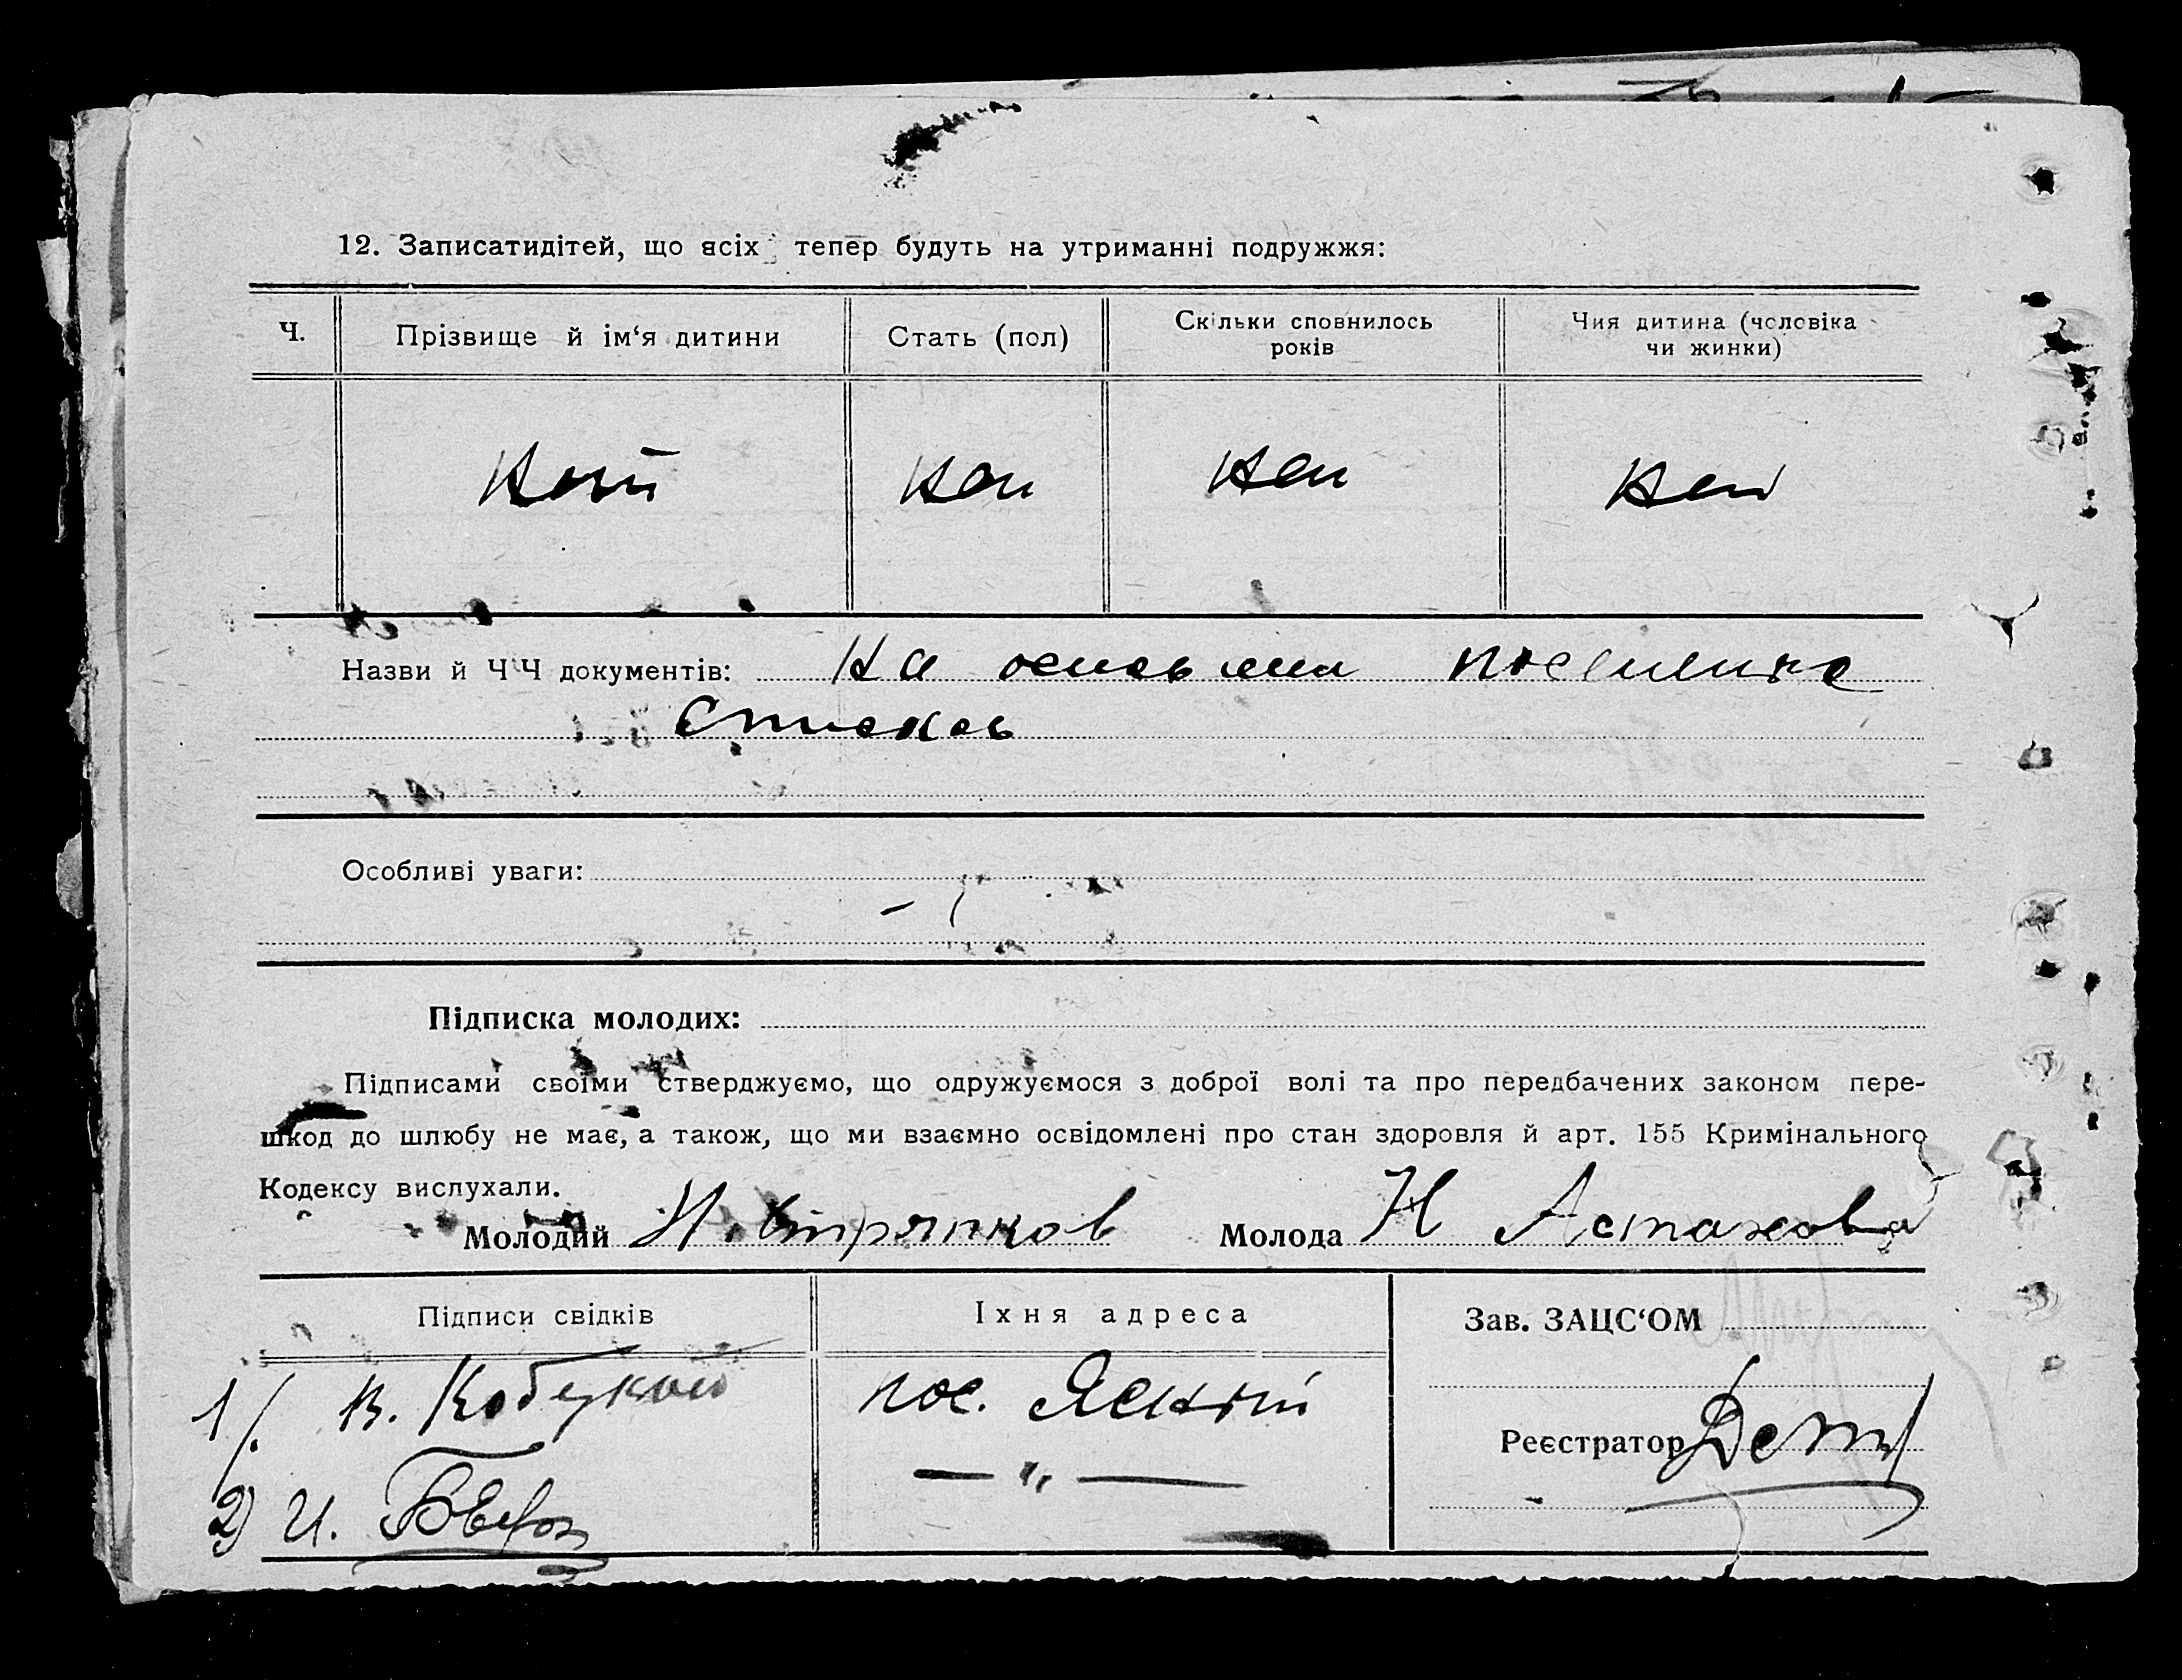 12. Записатидітей, що всіх тепер будуть на утриманні подружжя:
Ч. Прізвище й ім‘я дитини Стать (пол) Скільки сповнилось років Чия дитина (чоловіка чи жинки)
Назви й ЧЧ документів: На основании
списков
Особливі уваги: —
Підписка молодих:
Підписами своїми стверджуємо, що одружуємося з доброї волі та про передбачених законом пере-
шкод до шлюбу не має, а також, що ми взаємно освідомлені про стан здоровля й арт. 155 Кримінального
Кодексу вислухали.
Молодий Молода Н Астахова
Підписи свідків Іхня адреса Зав. ЗАЦС‘ОМ
1/. В. Кобецкой пос. Ясный
Реєстратор
2) И. — „ —